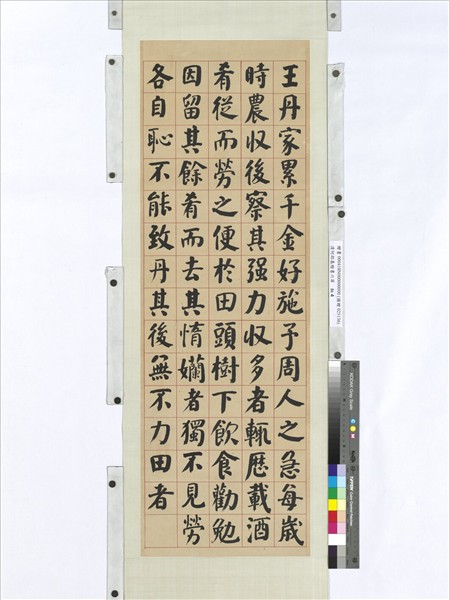 王丹家累千金好施予周人之急每歲
時農収後察其强力収多者輒歷載酒
肴從而勞之便於田頭樹下飲食勸勉
因留其餘肴而去其惰孏者獨不見勞
各自恥不能致丹其後無不力田者